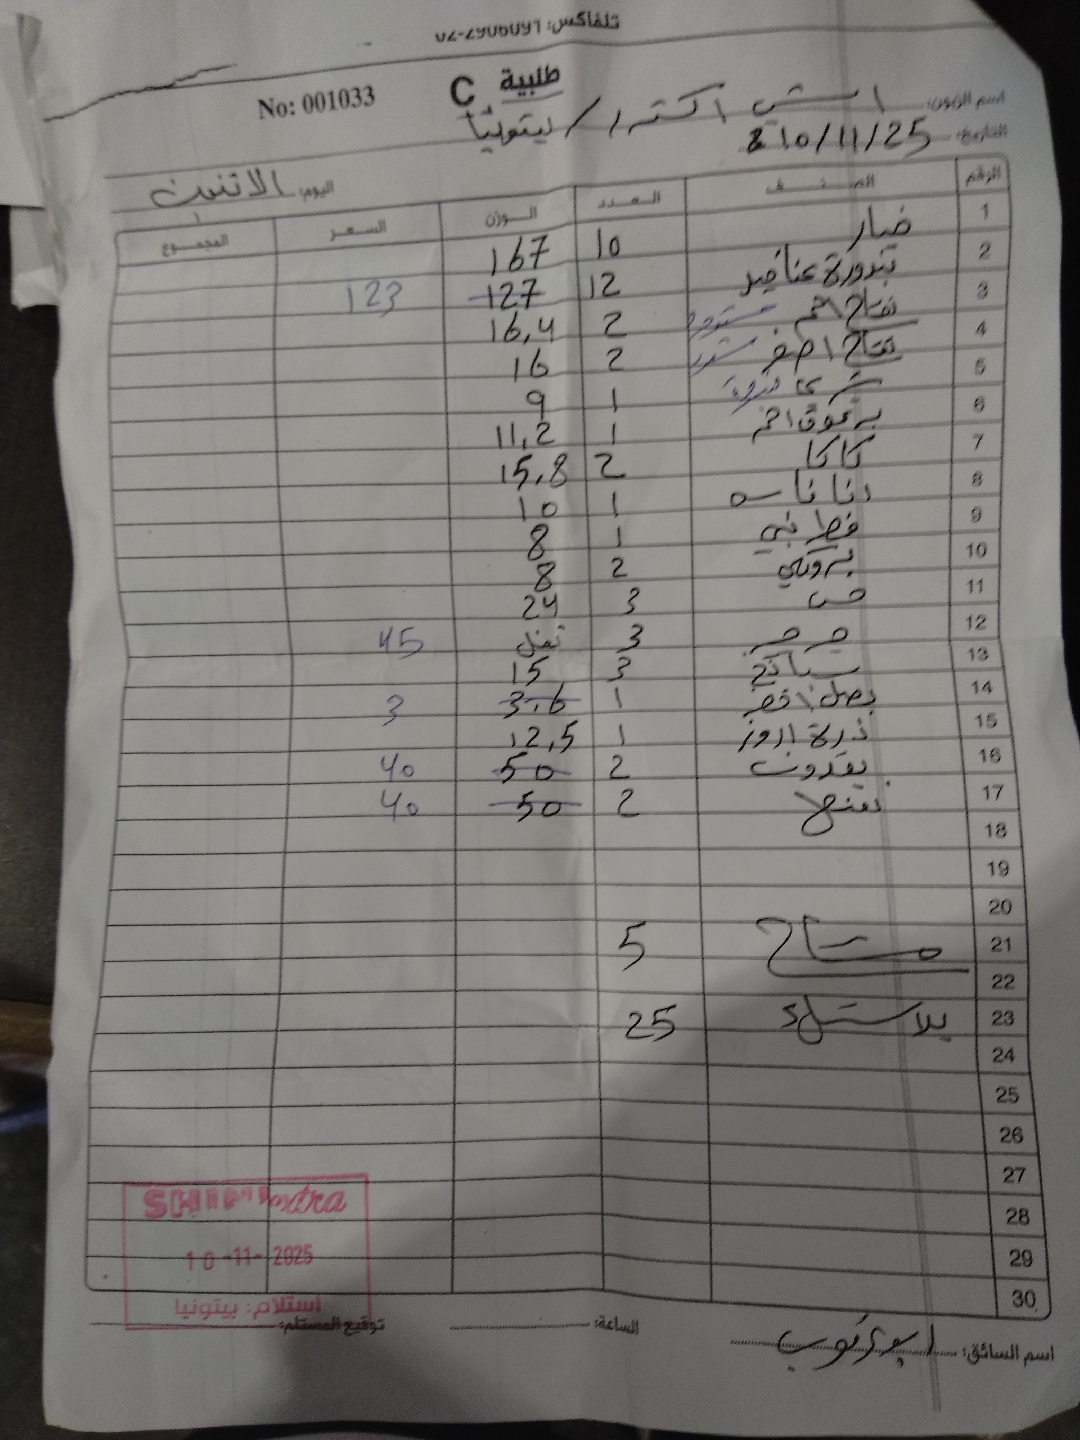 تلفاكس: 02-2906091
طلبية C
No: 001033
اسم الزبون: اكسترا / بيتونيا
التاريخ: 10/11/25
اليوم: الاثنين
الرقم الصنف العدد الوزن السعر المجموع
1 خيار 10 167
2 بندورة عناقيد 12 127 123
3 تفاح احمر 2 16,4
4 تفاح اصفر 2 16
5 1 9
6 برقوق احمر 1 11,2
7 كاكا 2 15,8
8 اناناس 1 10
9 1 8
10 2 8
11 خس 3 24
12 جرجر 3 45
13 سبانخ 3 15
14 بصل اخضر 1 3.6 3
15 ذرة 1 12,5
16 بقدونس 2 50 40
17 نعنع 2 50 40
18
19
20
21 مشتاح 5
22
23 بلاستيك 25
24
25
26
27
28
29
30
extra
10-11-2025
استلام: بيتونيا
اسم السائق: ابو
الساعة:
توقيع المستلم: